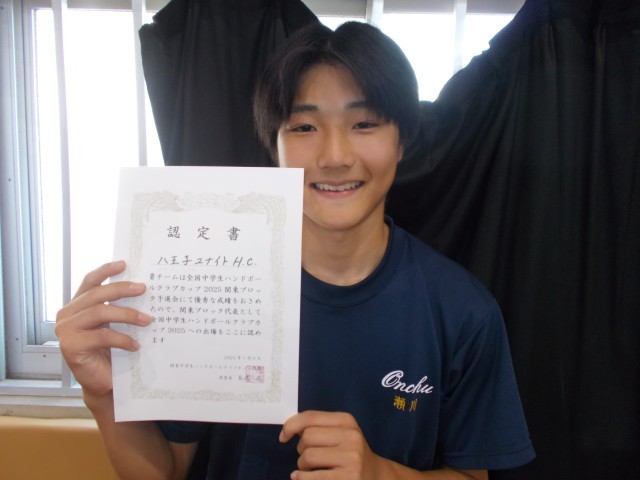 認定書
八王子ユナイト H.C.
貴チームは全国中学生ハンドボー
ルクラブカップ2025関東ブロッ
ク予選会にて優秀な成績をおさめ
たので、関東ブロック代表として
全国中学生ハンドボールクラブカ
ップ2025への出場をここに認め
ます
Onchu
瀬川